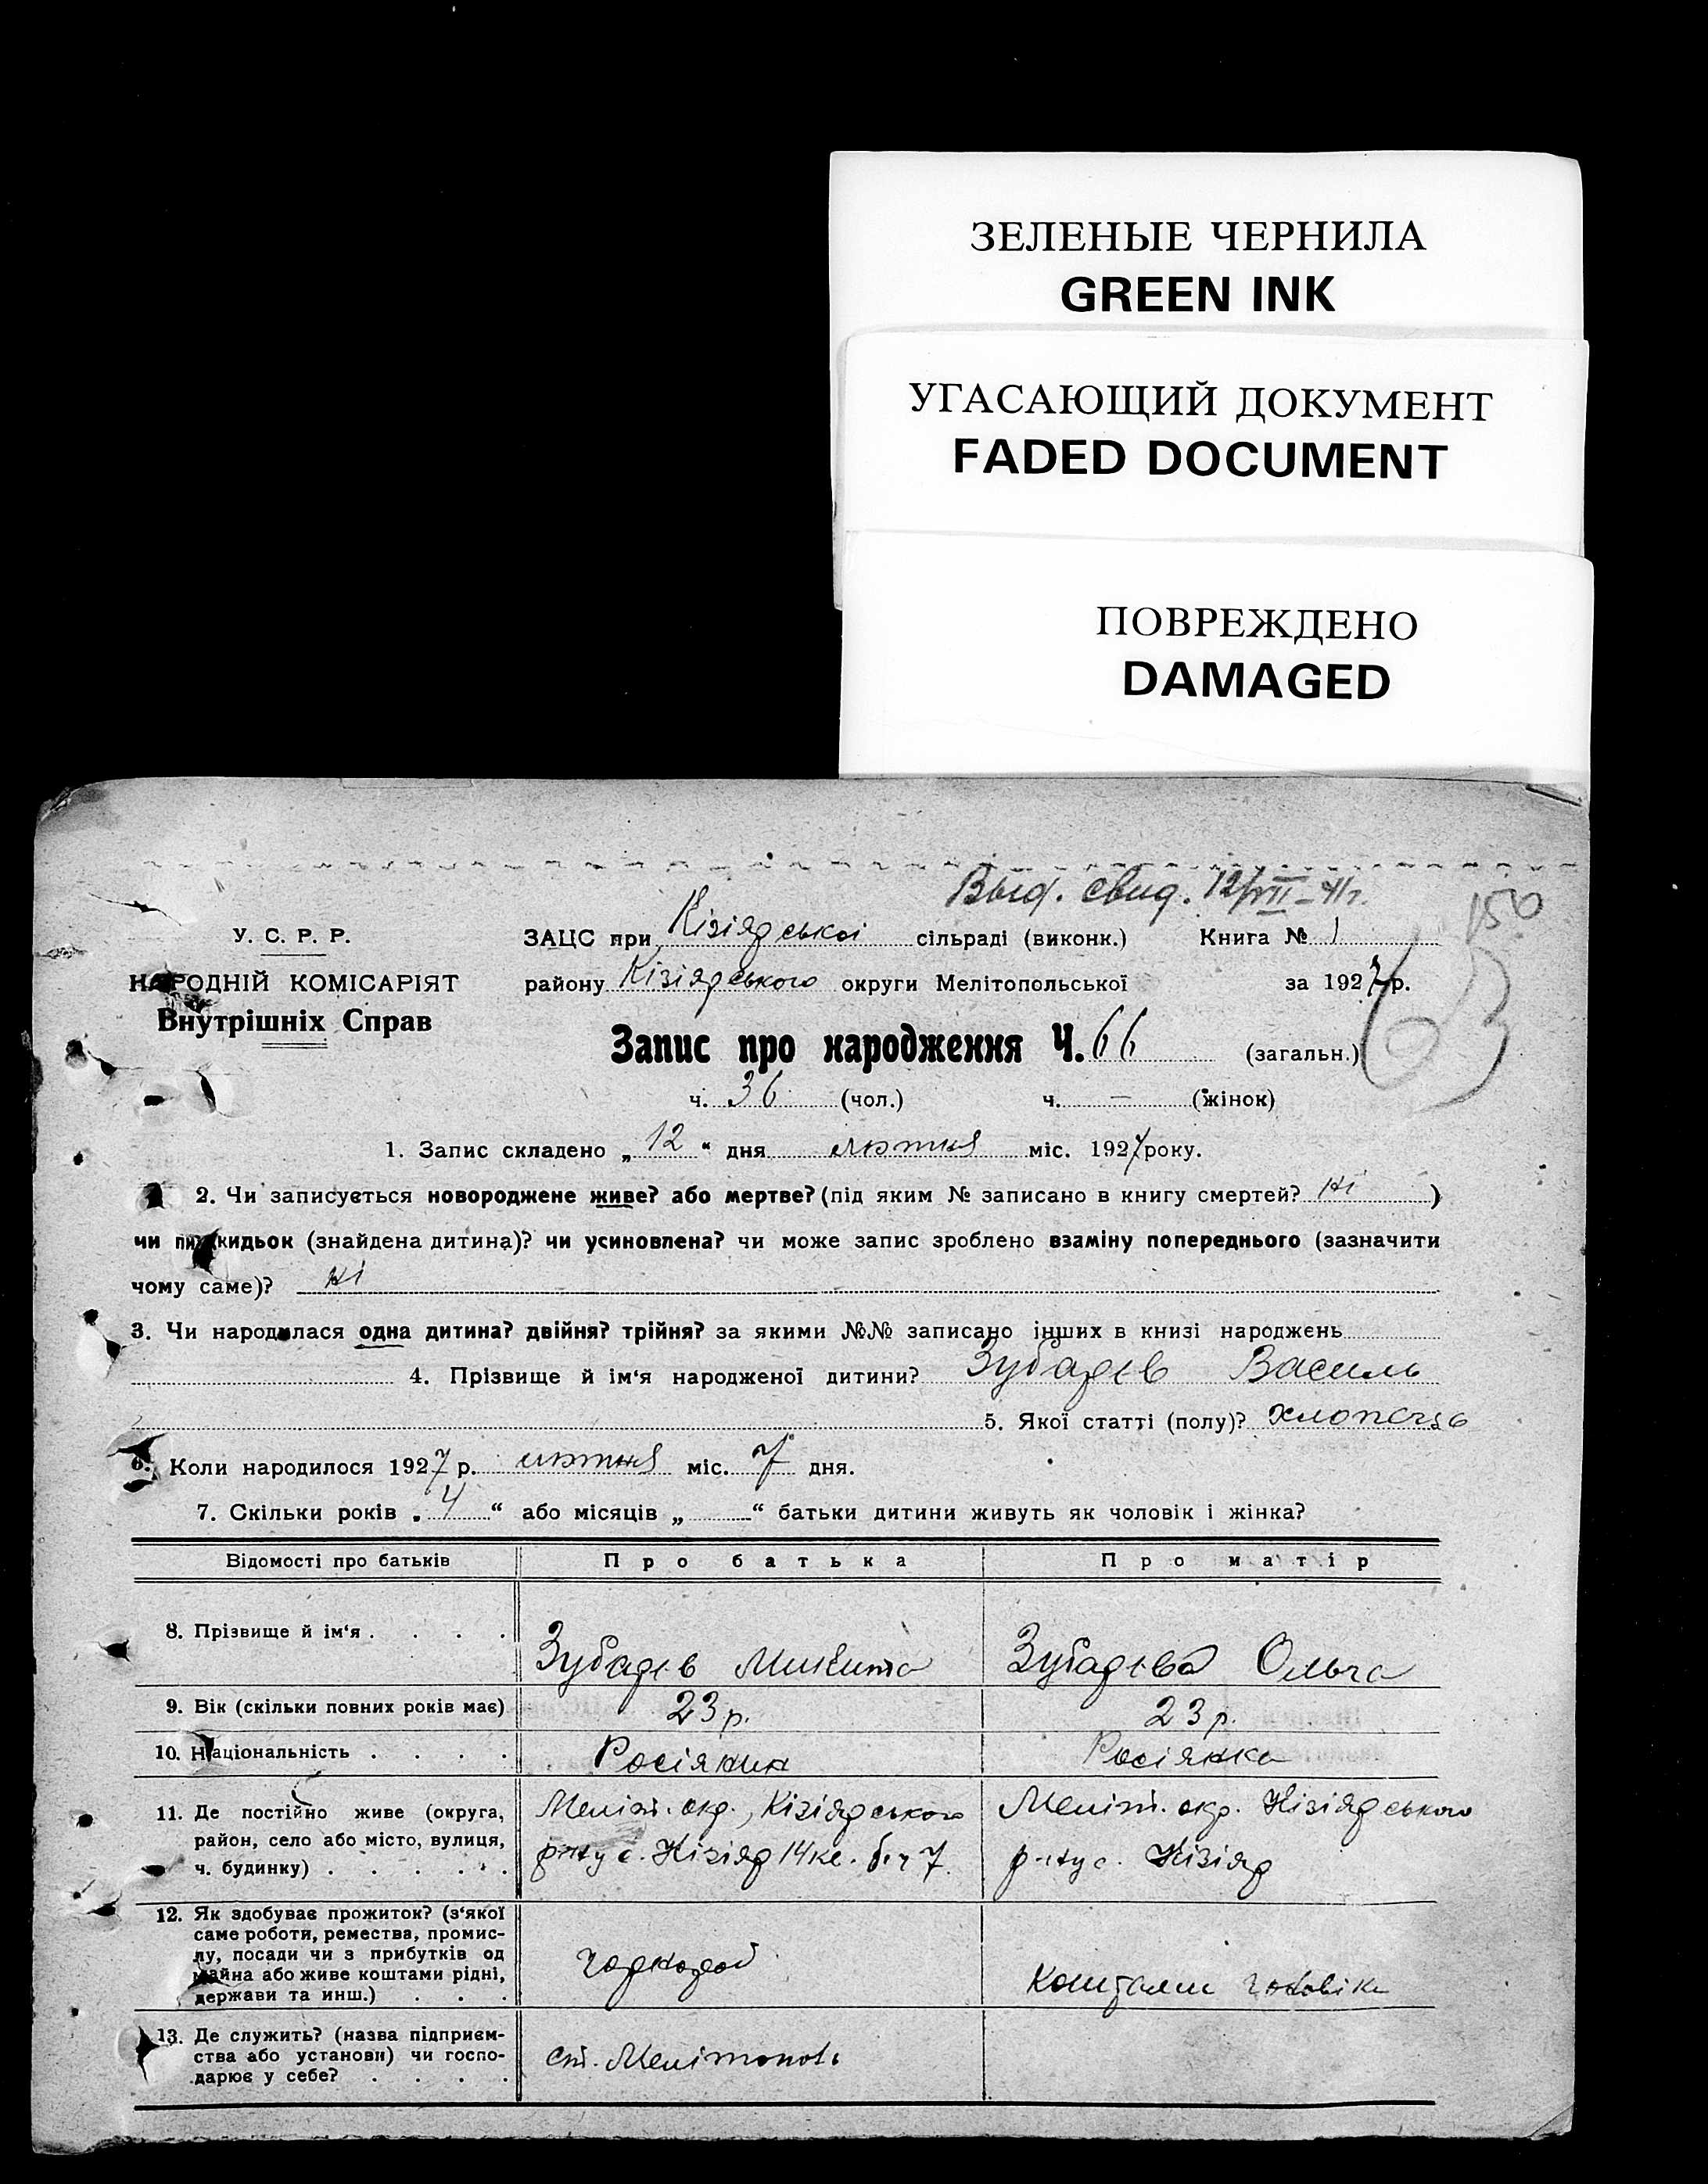 ЗЕЛЕНЫЕ ЧЕРНИЛА
GREEN INK
УГАСАЮЩИЙ ДОКУМЕНТ
FADED DOCUMENT
ПОВРЕЖДЕНО
DAMAGED
Выд. свид. 12/VII-41г.
150
У. С. Р. Р.
ЗАЦС при Кізіядської сільраді (виконк.) Книга № 1
НАРОДНІЙ КОМІСАРІЯТ
району Кізіядського округи Мелітопольської за 1927 р.
Внутрішніх Справ
63
Запис про народження Ч. 66 (загальн.)
ч. 36 (чол.) ч. — (жінок)
1. Запис складено „ 12 “ дня лютня міс. 1927 року.
2. Чи записується новороджене живе? або мертве? (під яким № записано в книгу смертей? ні )
чи підкидьок (знайдена дитина)? чи усиновлена? чи може запис зроблено взаміну попереднього (зазначити
чому саме)? ні
3. Чи народилася одна дитина? двійня? трійня? за якими №№ записано інших в книзі народжень
4. Прізвище й ім'я народженої дитини? Зубадєв Василь
5. Якої статті (полу)?
6. Коли народилося 1927 р. лютня міс. 7 дня.
7. Скільки років „ 4 “ або місяців „ “ батьки дитини живуть як чоловік і жінка?
Відомості про батьків
Про батька
Про матір
8. Прізвище й ім'я . . . .
Зубадєв Микита
Зубадєва Ольга
9. Вік (скільки повних років має)
23 р.
23 р.
10. Національність . . . .
Росіянин
Росіянка
11. Де постійно живе (округа,
район, село або місто, вулиця,
ч. будинку) . . . . . .
Меліт. окр., Кізіядського
р-ну с. Кізіяд 14 кв. б. ч 7.
Меліт. окр. Кізіядського
р-ну с. Кізіяд
12. Як здобуває прожиток? (з'якої
саме роботи, ремества, промис-
лу, посади чи з прибутків од
майна або живе коштами рідні,
держави та инш.) . . .
Коштами чоловіка
13. Де служить? (назва підприєм-
ства або установи) чи госпо-
дарює у себе? . . . .
ст. Мелітополь